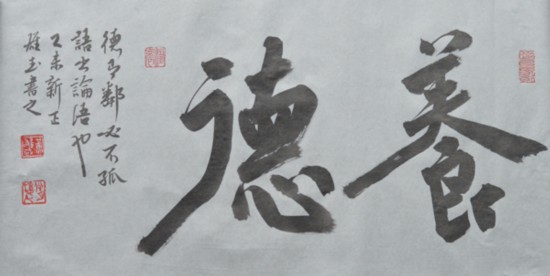 養德
德有鄰必不孤
語出論語也
乙未新正
玉書之